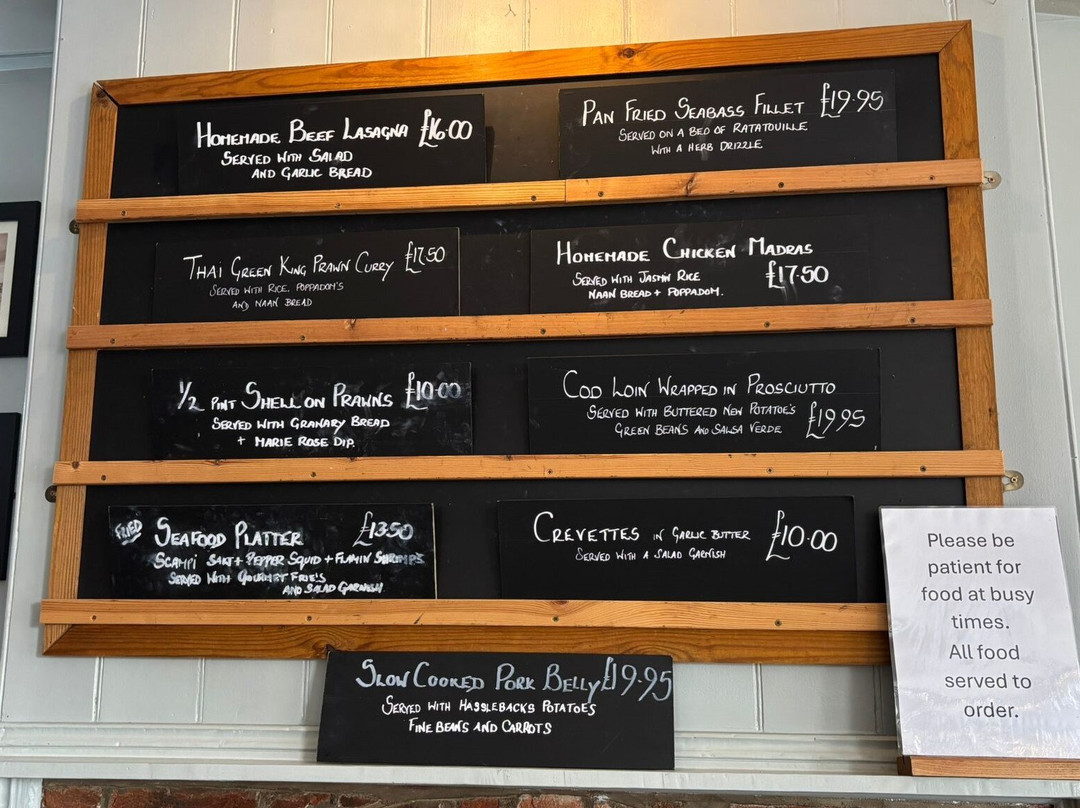 HOMEMADE BEEF LASAGNA £16.00
SERVED WITH SALAD
AND GARLIC BREAD
PAN FRIED SEABASS FILLET £19.95
SERVED ON A BED OF RATATOUILLE
WITH A HERB DRIZZLE
THAI GREEN KING PRAWN CURRY £17.50
SERVED WITH RICE, POPPADOM'S
AND NAAN BREAD
HOMEMADE CHICKEN MADRAS
SERVED WITH JASMIN RICE £17.50
NAAN BREAD + POPPADOM.
1/2 PINT SHELL ON PRAWNS £10.00
SERVED WITH GRANARY BREAD
+ MARIE ROSE DIP.
COD LOIN WRAPPED IN PROSCIUTTO
SERVED WITH BUTTERED NEW POTATOE'S £19.95
GREEN BEANS AND SALSA VERDE
FRIED SEAFOOD PLATTER £13.50
SCAMPI SALT + PEPPER SQUID + FLAMIN SHRIMPS
SERVED WITH GOURMET FRIE'S
AND SALAD GARNISH
CREVETTES IN GARLIC BUTTER £10.00
SERVED WITH A SALAD GARNISH
SLOW COOKED PORK BELLY £19.95
SERVED WITH HASSLEBACKS POTATOE'S
FINE BEANS AND CARROTS
Please be
patient for
food at busy
times.
All food
served to
order.